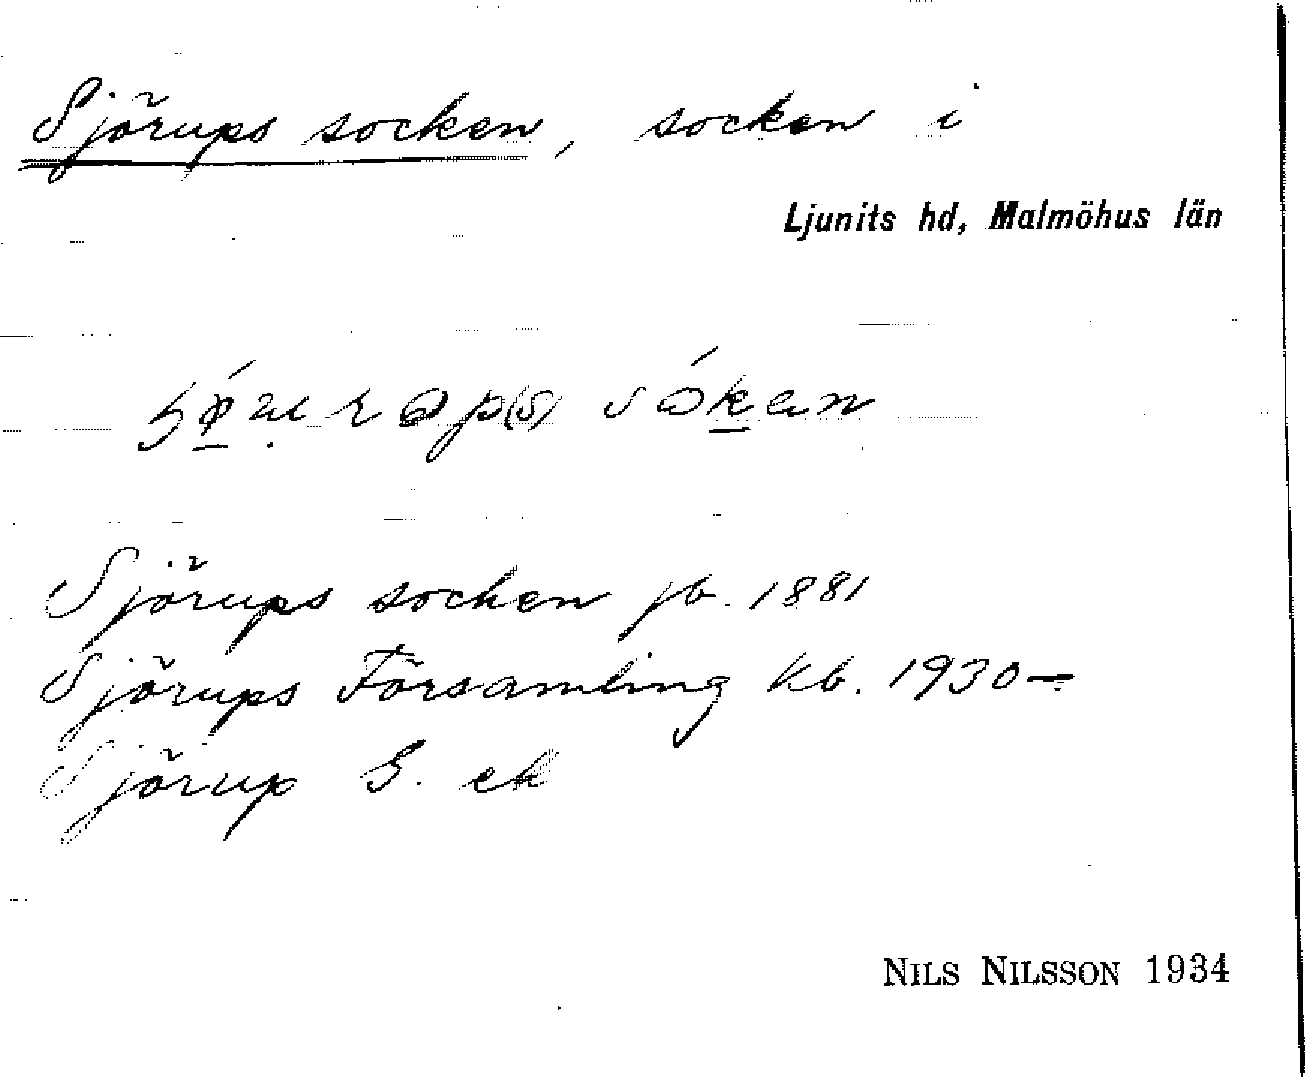 Sjörups socken, socken i
Ljunits hd, Malmöhus län
Sjörups socken jb. 1881
Sjörups Församling Kb. 1930–
Sjörup G. ek
NILS NILSSON 1934